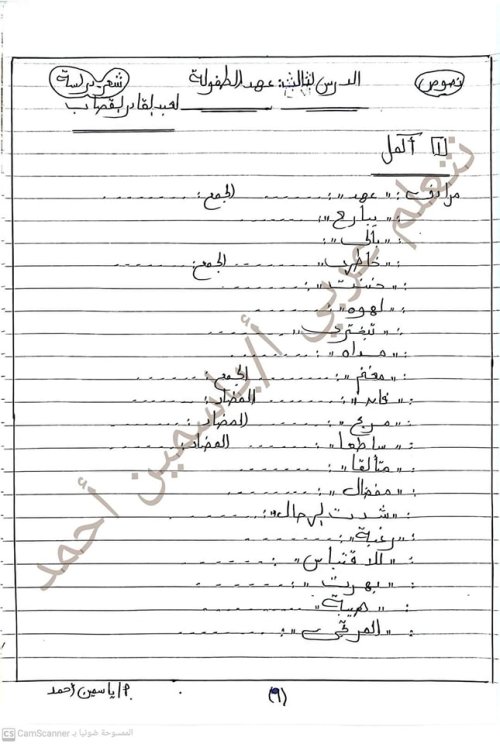 نصوص
الدرس الثالث: عهد الطفولة
شعر دراسة
لعبد القادر القصاب
١ أكمل
مرادف: "عهد": ....... الجمع: .......
: " يبارح ": .......
: " بالى ": .......
: " خاطرى ": ....... الجمع: .......
: " خشيت ": .......
: " لهوه ": .......
: " تعترى ": .......
: " مداه ": .......
: " مغنم ": ....... الجمع: .......
: ....... المضاد: .......
: " مريح ": ....... المضاد: .......
: " ساطعا ": ....... المضاد: .......
: " متألقا ": .......
: " مفضال ": .......
: " شدت الرحال ": .......
: " رغبة ": .......
: " الاقتباس ": .......
: " بهرت ": .......
: " هيبة ": .......
: " المرتجى ": .......
نتعلم عربي أ/ياسمين أحمد
(٩)
أ/ياسمين أحمد
CS CamScanner الممسوحة ضوئيا بـ